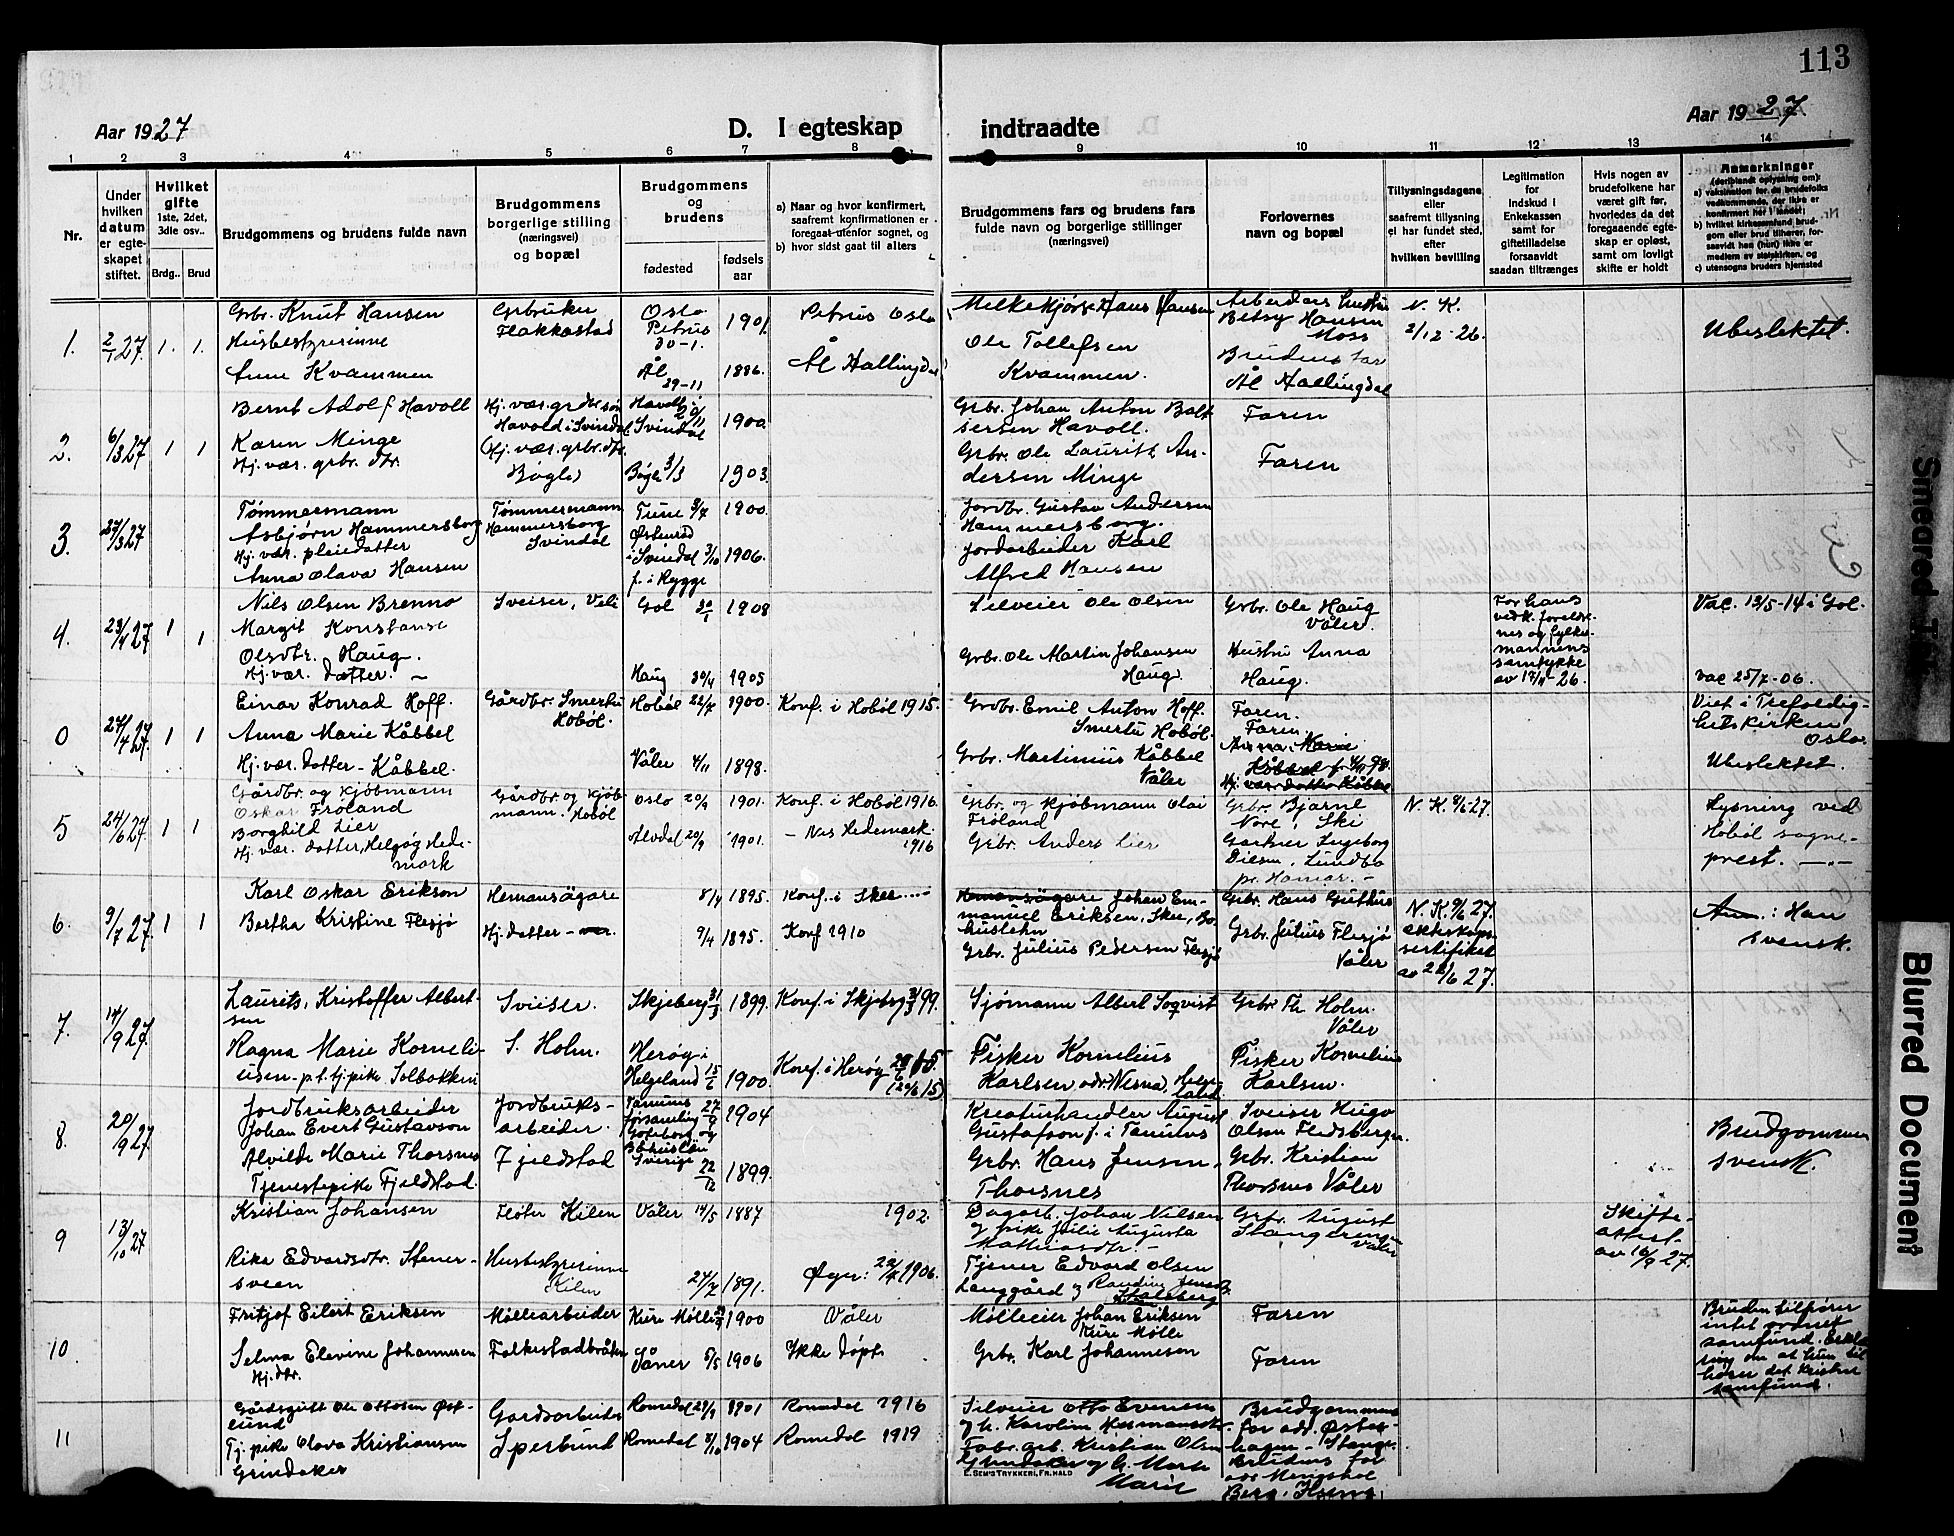 113
Aar 1927
D. I egteskap
indtraadte
Aar 1927
1 2 3 4 5 6 7 8 9 10 11 12 13 14
Nr.
Under hvilken datum er egteskapet stiftet.
Hvilket gifte
1ste, 2det, 3die osv..
Brdg.. Brud
Brudgommens og brudens fulde navn
Brudgommens borgerlige stilling (næringsvei) og bopæl
Brudgommens og brudens
fødested
fødsels aar
a) Naar og hvor konfirmert, saafremt konfirmationen er foregaat utenfor sognet, og
b) hvor sidst gaat til alters
Brudgommens fars og brudens fars fulde navn og borgerlige stillinger
Forlovernes navn og bopæl
Tillysningsdagene eller saafremt tillysning ei har fundet sted, efter hvilken bevilling
Legitimation for Indskud i Enkekassen samt for giftetilladelse forsaavidt saadan tiltrænges
Hvis nogen av brudefolkene har været gift før, hvorledes da det foregaaende egteskap er opløst, samt om lovligt skifte er holdt
Anmerkninger
(deriblandt oplysning om):
a) vaksination for de brudefolks vedkommende, der ikke er konfirmert her i landet;
b) hvilket kirkesamfund brudgom eller brud tilhører, forsaavidt han (hun) ikke er medlem av statskirken, og
c) utensogns bruders hjemsted
1. 2/1 27 1. 1.
Grbr. Knut Hansen
Husbestyrerinne
Anne Kvammen
Grbruker
Flakkastad
Oslo Petrus 30-1. 1901.
Ål 29-11 1886.
Petrus Oslo
Ål Hallingdal
Melkekjører Hans Hansen
Ole Tollefsen
Kvammen.
Arbeiders hustru
Betsy Hansen
Moss
Brudens far
Ål Hallingdal
N. K.
2/12-26.
Ubeslektet.
2. 6/3 27 1 1
Bernt Adolf Havoll
Karen Minge
Hj. vær. grbr. dtr.
Hj. vær. grdbr. søn
Havold i Svindal.
Hj. vær. grbr. dtr.
Bøgle
Svindal 1900.
Bøgle 3/3 1903.
Grbr. Johan Anton Baltsersen Havoll.
Grbr. Ole Lauritz Andersen Minge
Faren
Faren
3. 27/3 27
Tømmermann
Asbjørn Hammersborg
Hj. vær. pleiedatter
Anna Olava Hansen
Tømmermann
Hammersborg
Svindal
Tune 9/7 1900.
i Svindal 3/10 1906.
f. i Rygge
Jordbr. Gustav Andersen
Hammersborg.
Jordarbeider Karl
Alfred Hansen
4. 23/4 27 1 1
Nils Olsen Brenno
Margit Konstanse
Olsdtr. Haug.
Hj. vær. datter. —
Sveiser, Veli
Gol 30/1 1908
Haug 30/4 1905
Ole Olsen
Grbr. Ole Martin Johansen
Haug.
Grbr. Ole Haug
Våler.
Hustru Anna
Haug.
For hans
vedk. foreldrenes og fylkesmannens
samtykke
av 17/11-26.
Vac. 13/5-14 i Gol.
vac 25/7-06.
0 27/4 27. 1 1
Einar Konrad Hoff.
Anna Marie Kåbbel
Hj. vær. datter - Kåbbel.
Gårdbr. Smertu
Hobøl.
Hobøl 22/7 1900.
Våler 4/11 1898.
Konf. i Hobøl 1915.
Grdbr. Emil Anton Hoff.
Smertu Hobøl.
Grbr. Martinius Kåbbel
Våler
Faren.
Faren
Anna Marie
Kåbbel f. 4/11 98.
Hj. vær. datter Kåbbel
Viet i Trefoldighetskirken
Oslo.
Ubeslektet.
5 24/6 27 1 1
Gårdbr. og kjøbmann
Oskar Frøland
Borghild Lier
Hj. vær. datter, Helgøy Hedemark
Gårdbr. og kjøbmann. Hobøl
Oslo 20/9 1901.
Alvdal 20/9 1901.
Konf. i Hobøl 1916.
- Nes Hedemark.
1916
Grbr. og kjøbmann Olai
Frøland
Grbr. Anders Lier
Grbr. Bjarne
Nore, Ski
Gartner Ingeborg
Diesen, Lundbo
pr. Hamar. —
N. K. 8/6-27.
Lysning ved
Hobøl sogneprest. —
6. 9/7 27. 1 1
Karl Oskar Erikson
Bertha Kristine Flesjø
Hemansägare
Hj. datter -
8/4 1895.
9/4 1895.
Konf. i Skee
Konf. 1910
Hemansägare Johan Emmanuel Eriksen, Skee, Bohuslehn
Grbr. Julius Pedersen Flesjø
Grbr. Hans Guthus
Grbr. Julius Flesjø
Våler
N. K. 9/6 27.
Ekteskapssertifikat
av 22/6 27.
Anm.: Han
svensk.
7. 14/9 27.
Laurits Kristoffer Albertsen
Ragna Marie Korneliusen. p.t. tj. pike Solbakken
Sveiser.
S. Holm.
Skjeberg 31/3 1899.
Herøy i
Helgeland 15/6 1900.
Konf. i Skjeberg 3/3 99.
Konf. i Herøy
(20/6 15)
Sjømann Albert Soqvist
Fisker Kornelius
Karlsen, adr. Nesna, Helgeland.
Grbr. Th. Holm.
Våler
Fisker Kornelius
Karlsen.
8. 20/9 27.
Jordbruksarbeider
Johan Evert Gustavson
Alvilde Marie Thorsnes
Tjenestepike Fjeldstad.
Jordbruksarbeider.
Fjeldstad
Tanums
församling
Göteborg og
Bohuslän
Sverige
27/9 1904
22/12 1899.
Kreaturhandler August
Gustafson f. i Tanums
Grbr. Hans Jensen
Thorsnes
Sveiser Hugo
Olsen Fledsberg
Grbr. Kristian
Thorsnes Våler
Brudgommen
svensk.
9 13/10 27
Kristian Johansen
Rike Edvardsdtr. Stenersveen
Fløter Kilen
Husbestyrerinne
Kilen
Våler 14/5 1887
27/7 1891.
1902.
Øyer: 22/4 1906.
Dagarb. Johan Nilsen
og pike Julie Augusta
Mathiasdtr. —
Tjener Edvard Olsen
Langgård og Randine
Stalsberg
Grbr. August
Stangereng
Våler
Skifteattest
av 16/9 27.
10
Fritjof Eilert Eriksen
Selma Elevine Johannesen
Hj. dtr.
Møllearbeider
Folkestadbråten
Kure Mølle 1900
Såner 5/5 1906
Våler
Ikke døpt
Mølleeier Johan Eriksen
Kure Mølle
Grbr. Karl Johannesen
Faren
Faren
Bruden tilhører
intet ordnet
samfund. Erklæring om at hun tilhører det kristne
samfund.
11
Gårdsgutt Ole Ottosen Østlund
Tj. pike Olava Kristiansen
Grindaker
Gardsarbeider
Sperlund
Romedal 29/9 1901
Romedal 8/10 1904
Romedal 1916
Romedal 1919
Otto Evensen
og h. Karoline Hermansdtr.
Fabr. arb. Kristian Olsen
Grindaker og h. Marte
Marie
Brudgommens
far adr. Østeshagen - Stange.
Brudens far
adr. Mengshol
Berg.
E. SEM'S TRYKKERI, FR.HALD
Smeared Text
Blurred Document